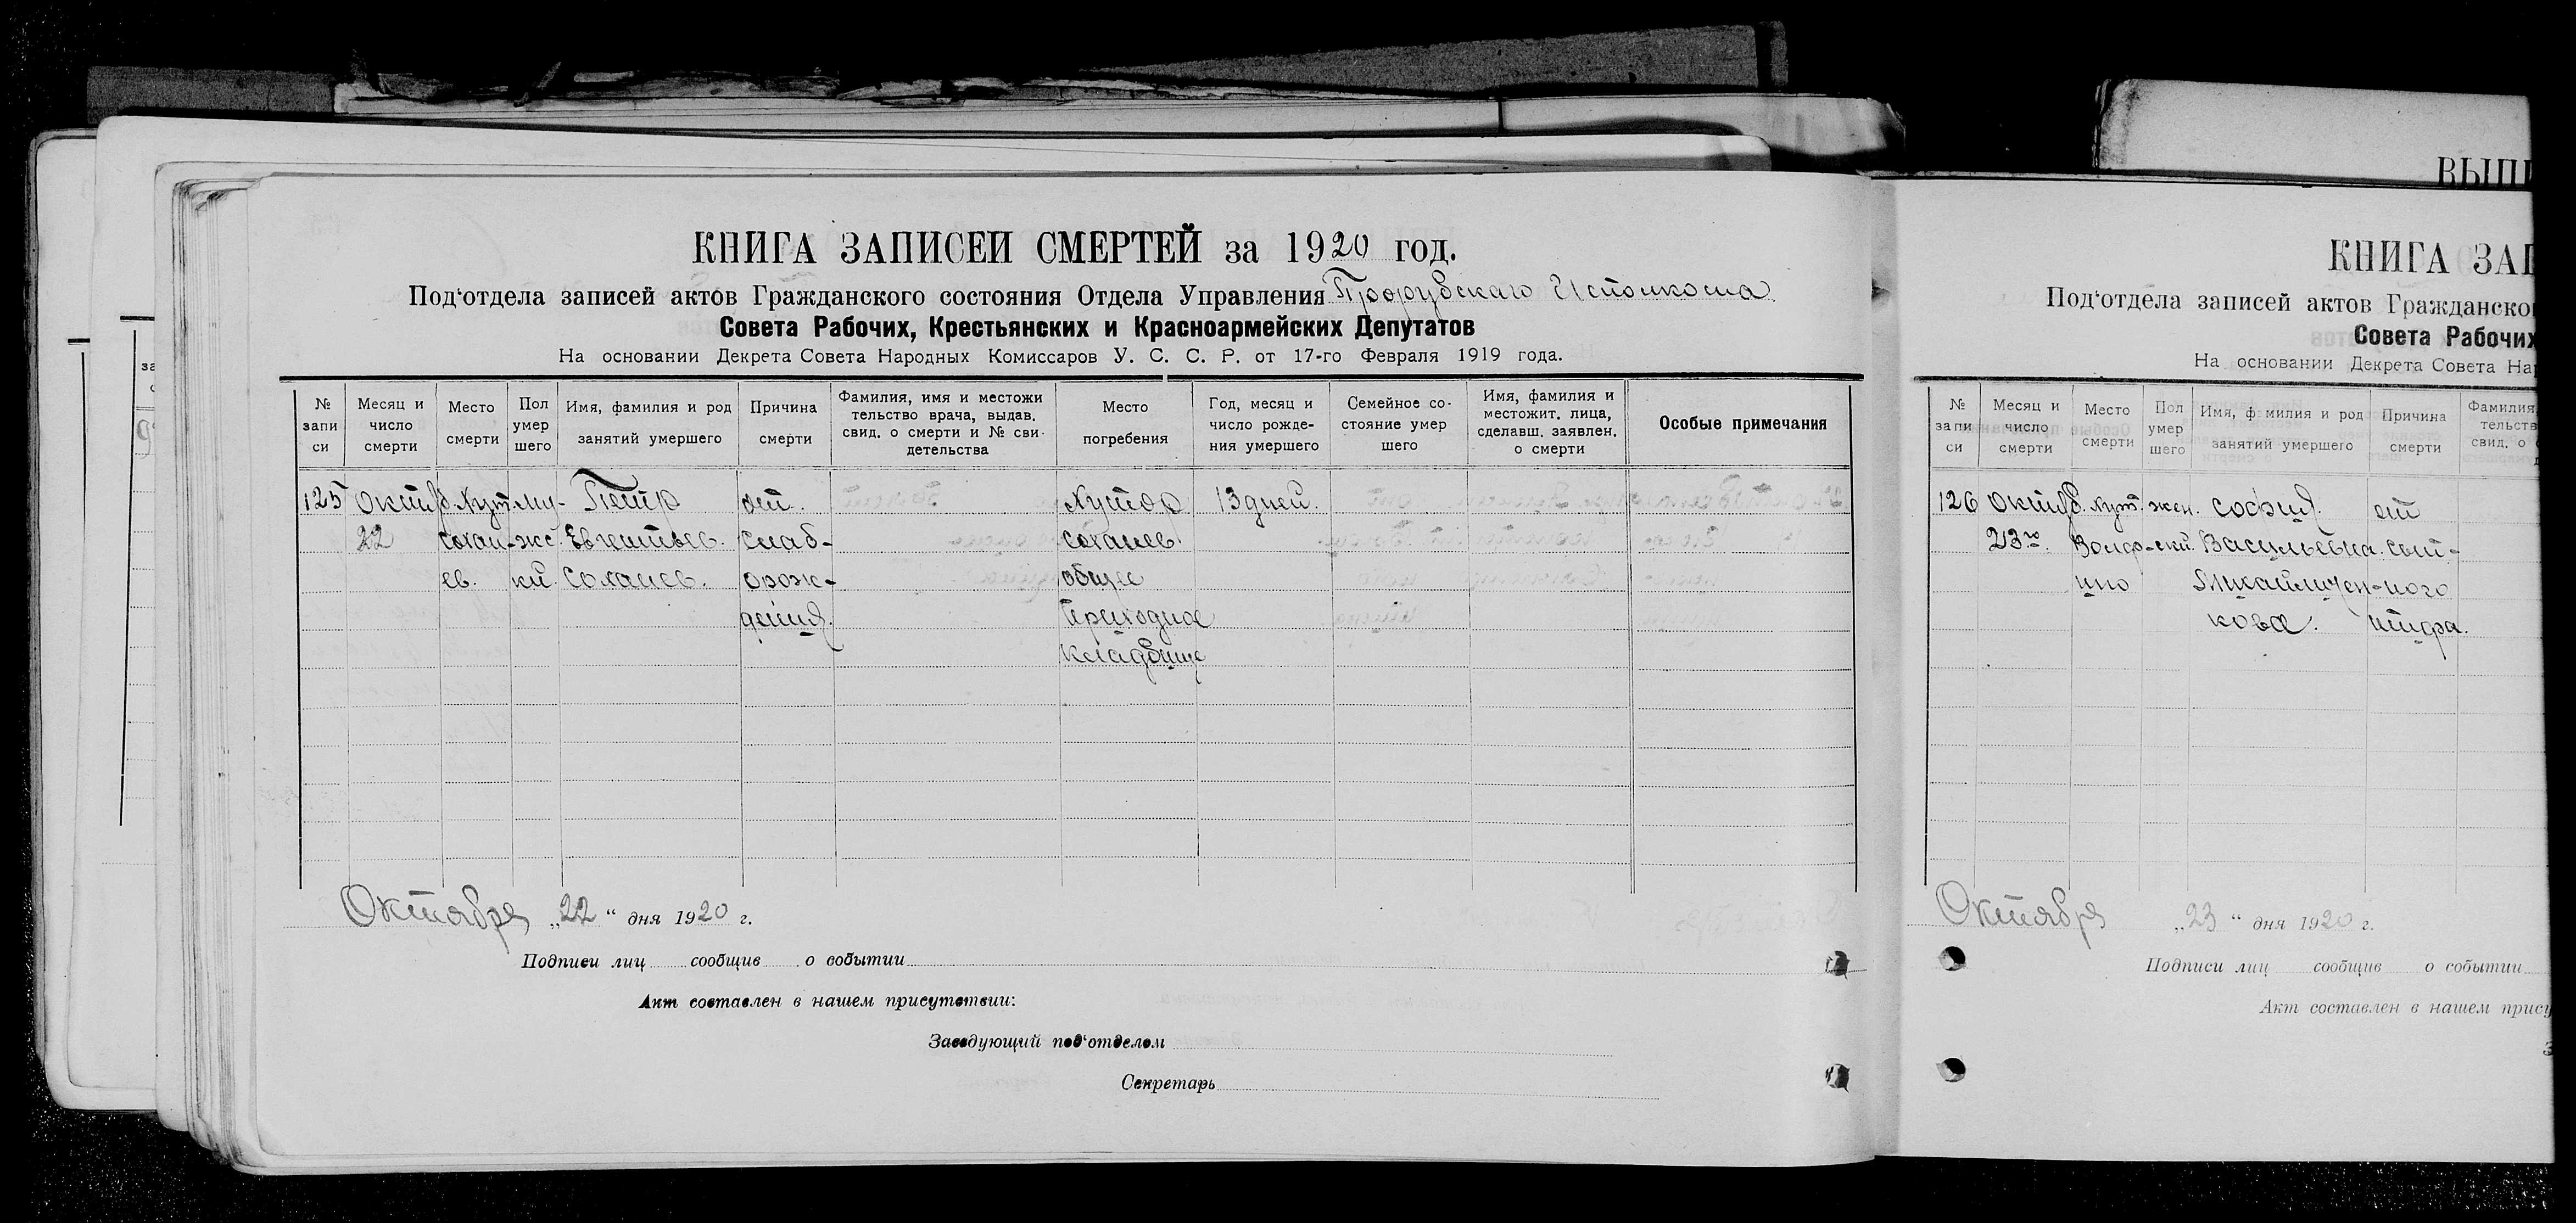 КНИГА ЗАПИСЕЙ СМЕРТЕЙ за 1920 год.
Под‘отдела записей актов Гражданского состояния Отдела Управления Прорубскаго Исполкома
Совета Рабочих, Крестьянских и Красноармейских Депутатов
На основании Декрета Совета Народных Комиссаров У. С. С. Р. от 17-го Февраля 1919 года.
№ запи си
Месяц и число смерти
Место смерти
Пол умер шего
Имя, фамилия и род занятий умершего
Причина смерти
Фамилия, имя и местожи тельство врача, выдав. свид. о смерти и № сви- детельства
Место погребения
Год, месяц и число рожде- ния умершего
Семейное со- стояние умер шего
Имя, фамилия и местожит. лица, сделавш. заявлен. о смерти
Особые примечания
125 Октяб. Хут. му- Петр от. Хутор 13 дней.
22 Сохан- жс. Евгентьев. слаб- Соханев.
ев. кй. Соханев. орож- общее
дения. Приходное
кладбище
Октября „22“ дня 1920 г.
Подписи лиц сообщив о событии
Акт составлен в нашем присутствии:
Заведующий под‘отделом
Секретарь
ВЫПИ
КНИГА ЗАП
Под‘отдела записей актов Гражданско
Совета Рабочих
На основании Декрета Совета На
№ запи си
Месяц и число смерти
Место смерти
Пол умер шего
Имя, ф милия и род занятий умершего
Причина смерти
Фамилия, тельств свид. о
126 Октяб. хут. жен. София. от
23го. Волф- ски. Васильевна. сып-
ино Михайличен- ного
кова. тифа.
Октября „23“ дня 1920 г.
Подписи лиц сообщив о событии
Акт составлен в нашем прису